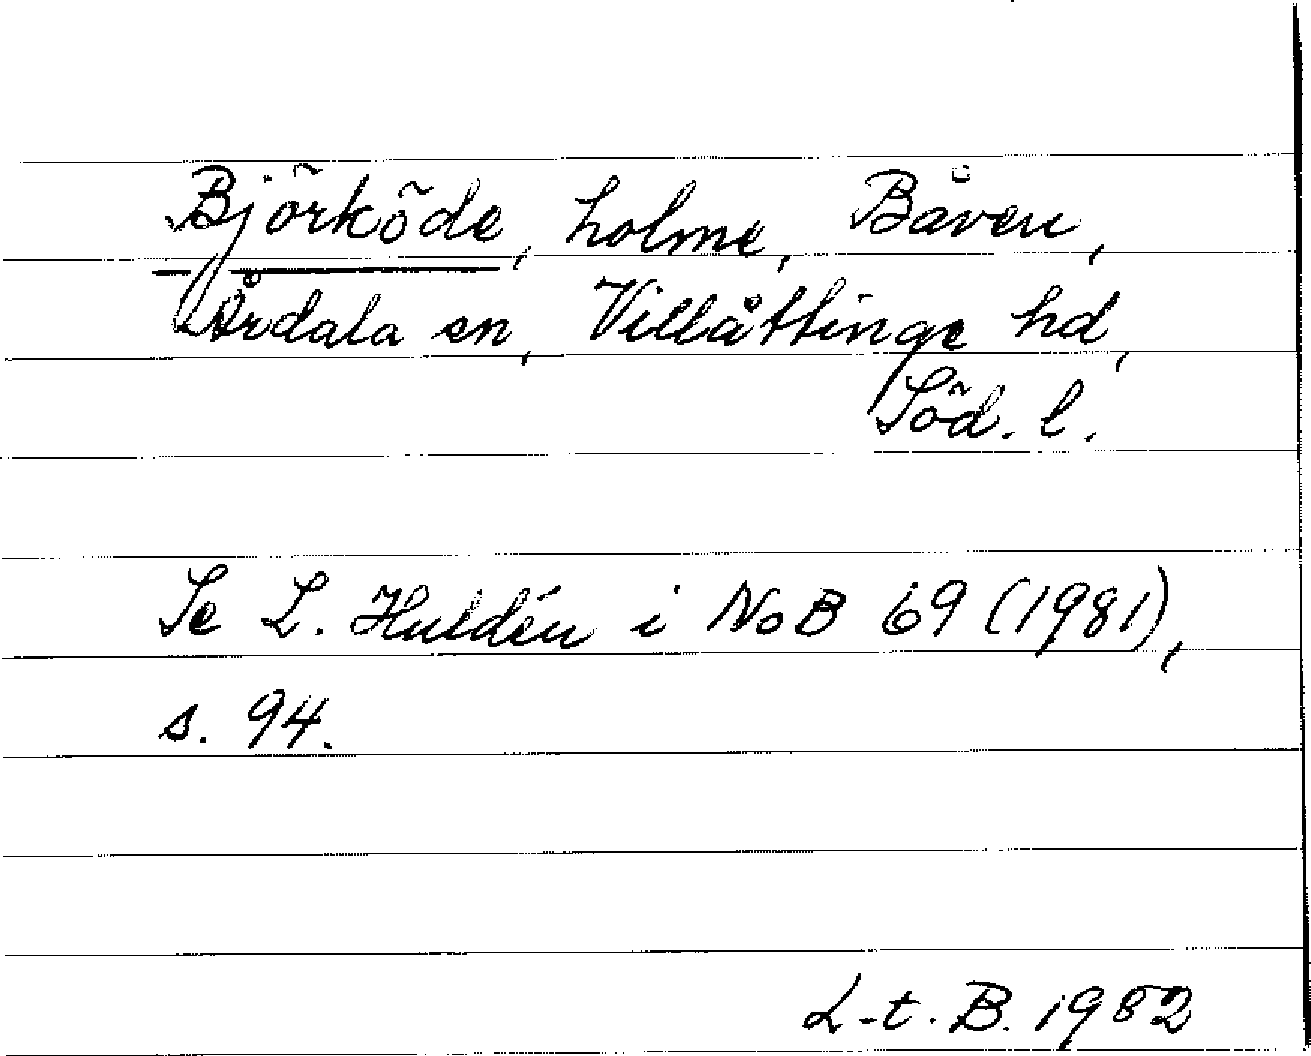 Björköde, holme, Båven,
Årdala sn, Villåttinge hd,
Söd. l.
Se L. Huldén i NoB 69 (1981),
s. 94.
L-t. B. 1982